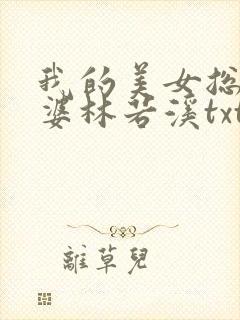 我的美女总
婆林若溪txt
離草兒